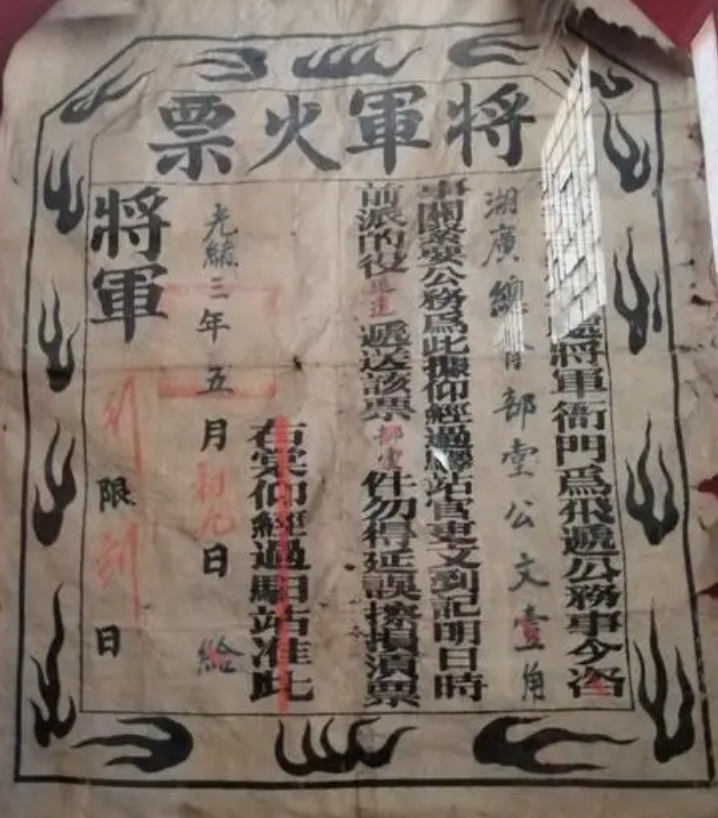 將軍火票
將軍衙門爲飛遞公務事今咨
湖廣總督部堂公文壹角
事關緊要公務爲此撥仰經過驛站官吏文到記明日時
前派的役遞送該票部堂件勿得延誤擦損漬票
右棠仰經過馹站准此
光緒三年五月初九日給
將軍
限刻日